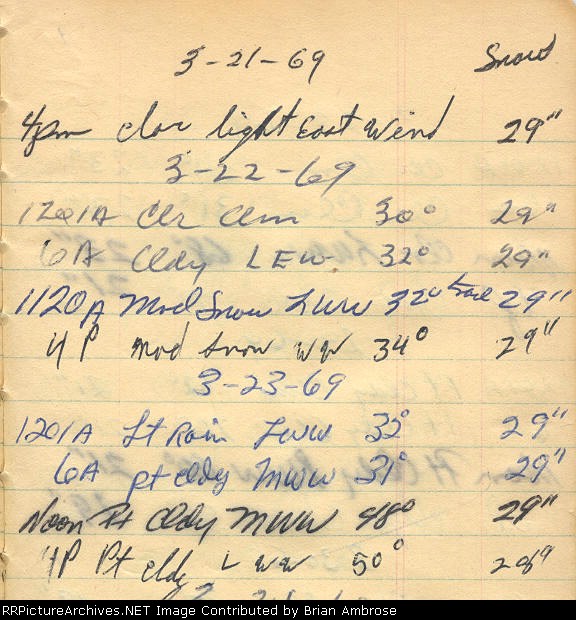 3-21-69 Snow
4pm clar light East Wind 29"
3-22-69
1201A Clr Clm 30° 29"
6A Cldy LEW 32° 29"
1120A Mod Snow LWW 32° 29"
4P Mod Snow WW 34° 29"
3-23-69
1201A Lt Rain LWW 32° 29"
6A pt cldy MWW 31° 29"
Noon Pt Cldy MWW 48° 29"
4P Pt cldy L WW 50° 28"
RailPictureArchives.NET Image Contributed by Brian Ambrose